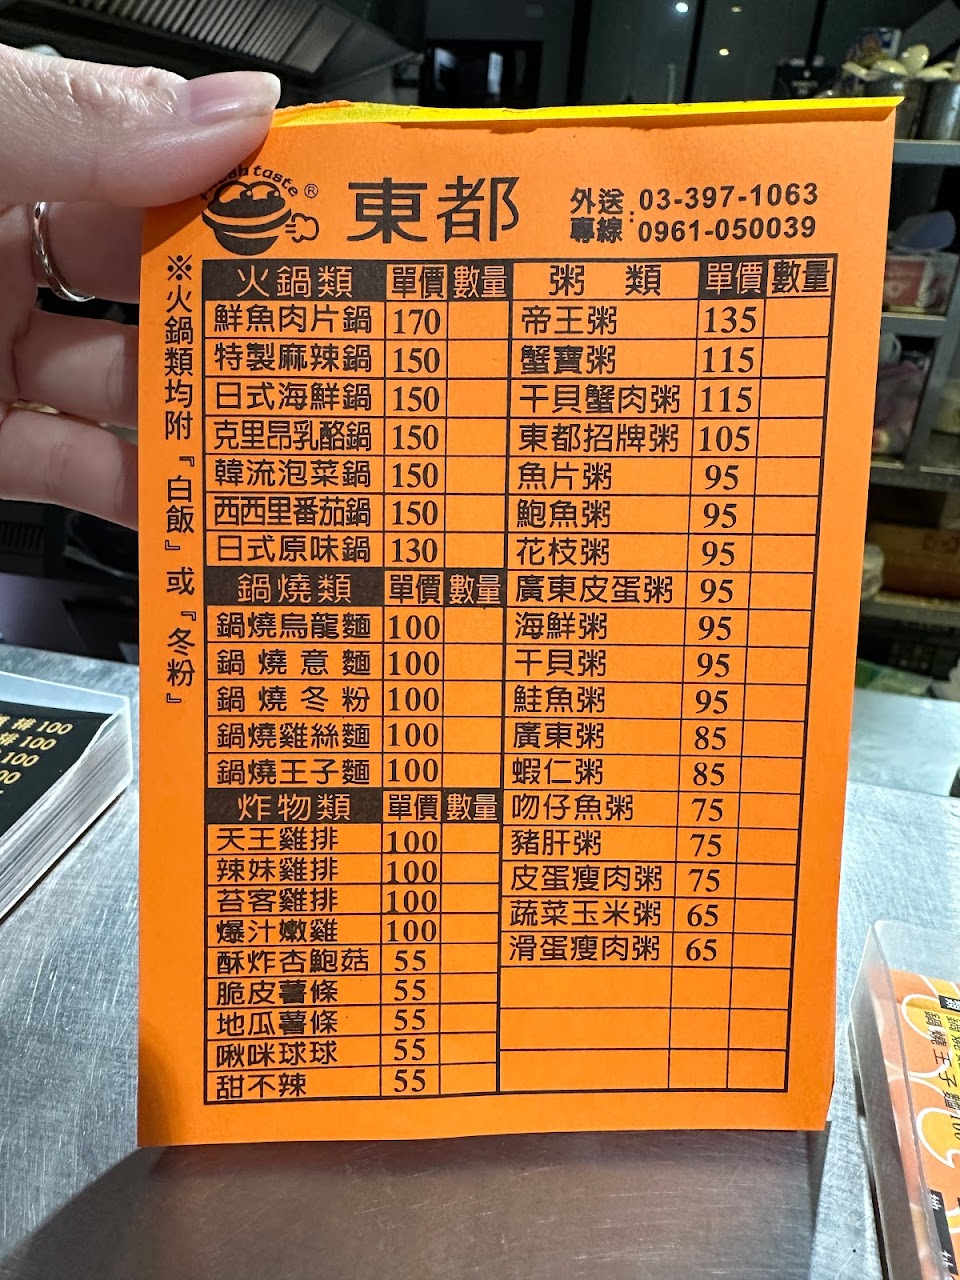 taste®
東都
外送專線: 03-397-1063
0961-050039
※火鍋類均附『白飯』或『冬粉』
火鍋類 單價 數量
鮮魚肉片鍋 170
特製麻辣鍋 150
日式海鮮鍋 150
克里昂乳酪鍋 150
韓流泡菜鍋 150
西西里番茄鍋 150
日式原味鍋 130
鍋燒類 單價 數量
鍋燒烏龍麵 100
鍋燒意麵 100
鍋燒冬粉 100
鍋燒雞絲麵 100
鍋燒王子麵 100
炸物類 單價 數量
天王雞排 100
辣妹雞排 100
苔客雞排 100
爆汁嫩雞 100
酥炸杏鮑菇 55
脆皮薯條 55
地瓜薯條 55
啾咪球球 55
甜不辣 55
粥類 單價 數量
帝王粥 135
蟹寶粥 115
干貝蟹肉粥 115
東都招牌粥 105
魚片粥 95
鮑魚粥 95
花枝粥 95
廣東皮蛋粥 95
海鮮粥 95
干貝粥 95
鮭魚粥 95
廣東粥 85
蝦仁粥 85
吻仔魚粥 75
豬肝粥 75
皮蛋瘦肉粥 75
蔬菜玉米粥 65
滑蛋瘦肉粥 65
排 100
排 100
100
鍋燒王子麵 100